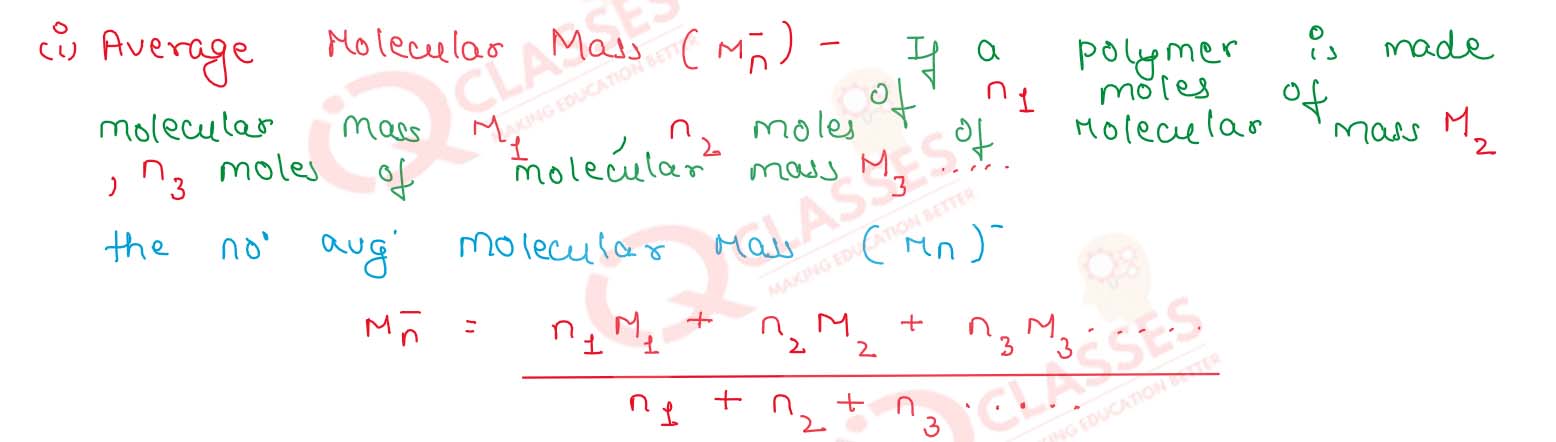 (i) Average Molecular Mass (M̄n) - If a polymer is made of n1 moles of
molecular mass M1, n2 moles of Molecular mass M2
, n3 moles of molecular mass M3 .....
the no. avg. molecular Mass (Mn)‾
M̄n = n1M1 + n2M2 + n3M3......
n1 + n2 + n3 .....
IQ CLASSES
MAKING EDUCATION BETTER
IQ CLASSES
MAKING EDUCATION BETTER
IQ CLASSES
MAKING EDUCATION BETTER